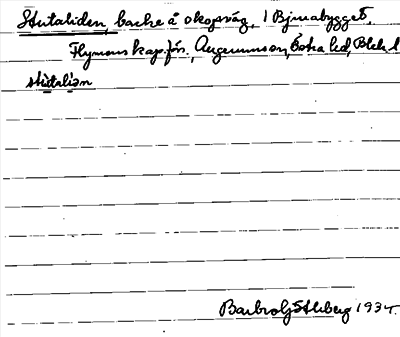 Stutaliden, backe å skogsväg, i Bjurabygget,
Flymens kap.förs., Augerum sn, Östra hd, Blek. l
stùtalìən
Barbro Ljs Ahlberg 1934.